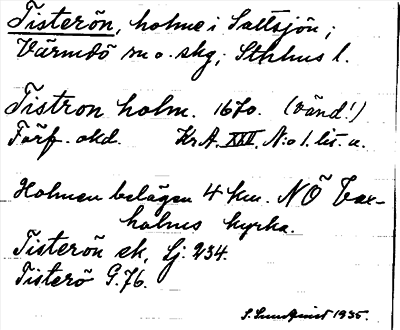 Tisterön, holme i Saltsjön;
Värmdö sn o. skg; Sthlms l.
Tistron holm. 1670. (vänd!)
Förf. okd. Kr.A. XXII, N:o 1. lit. u.
Holmen belägen 4 km. NÖ Vax-
holms kyrka.
Tisterön ek, Lj. 234.
Tisterö G. 76.
S. Sundqvist 1935.